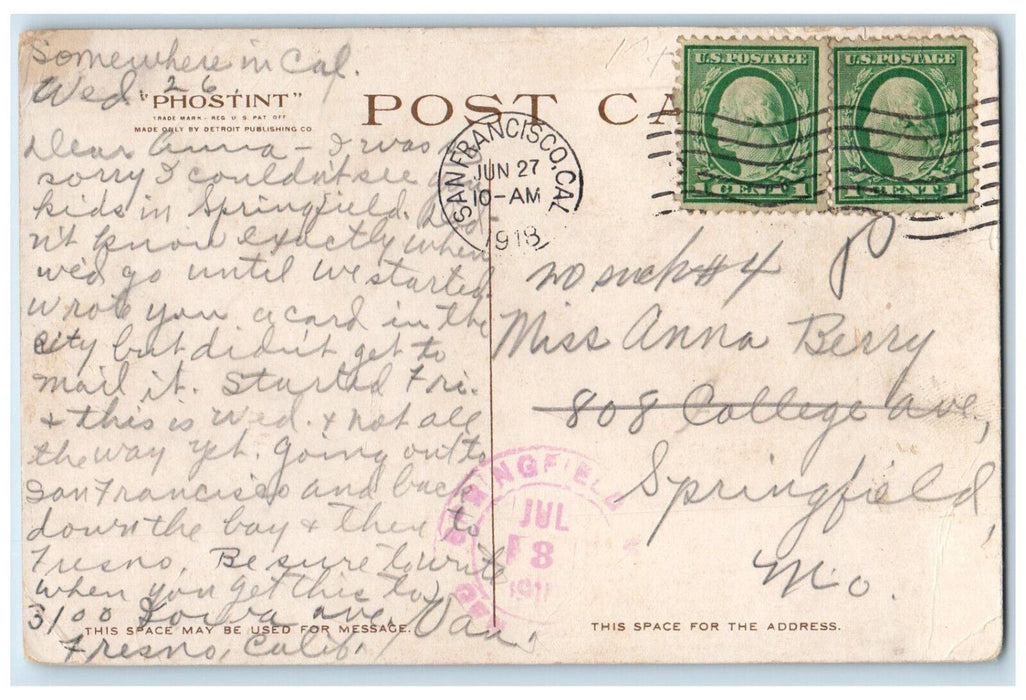 Somewhere in Cal.
Wed. 26.
"PHOSTINT"
TRADE MARK - REG U.S. PAT OFF
MADE ONLY BY DETROIT PUBLISHING CO
POST CA
Dear Anna - I was so
sorry I couldn't see you
kids in Springfield. Did-
n't know exactly when
we'd go until we started.
Wrote you a card in the
city but didn't get to
mail it. Started Fri.
& this is Wed. & not all
the way yet. Going out to
San Francisco and back
down the bay & then to
Fresno. Be sure to write
when you get this to
3100 Iowa ave, Van.
Fresno, Calif.
THIS SPACE MAY BE USED FOR MESSAGE.
SAN FRANCISCO, CAL
JUN 27
10-AM
1918
U.S. POSTAGE
1 CENT 1
U.S. POSTAGE
1 CENT 1
no such #4
Miss Anna Berry
808 College ave,
Springfield,
Mo.
SPRINGFIELD
JUL
8
191
THIS SPACE FOR THE ADDRESS.